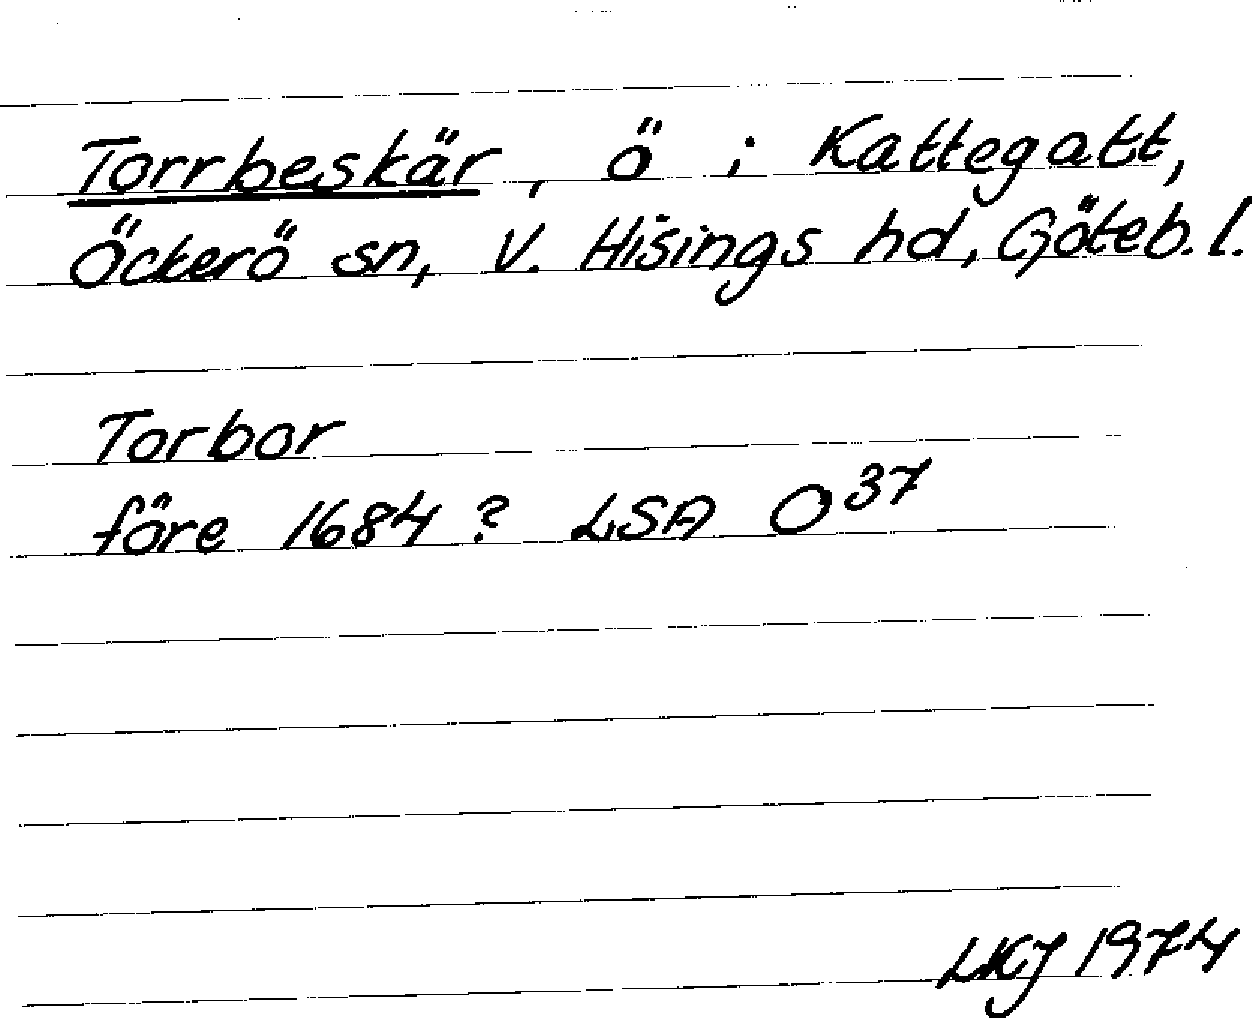 Torrbeskär, ö i Kattegatt,
Öckerö sn, V. Hisings hd, Göteb. l.
Torbor
före 1684? LSA O³⁷
LKJ 1974